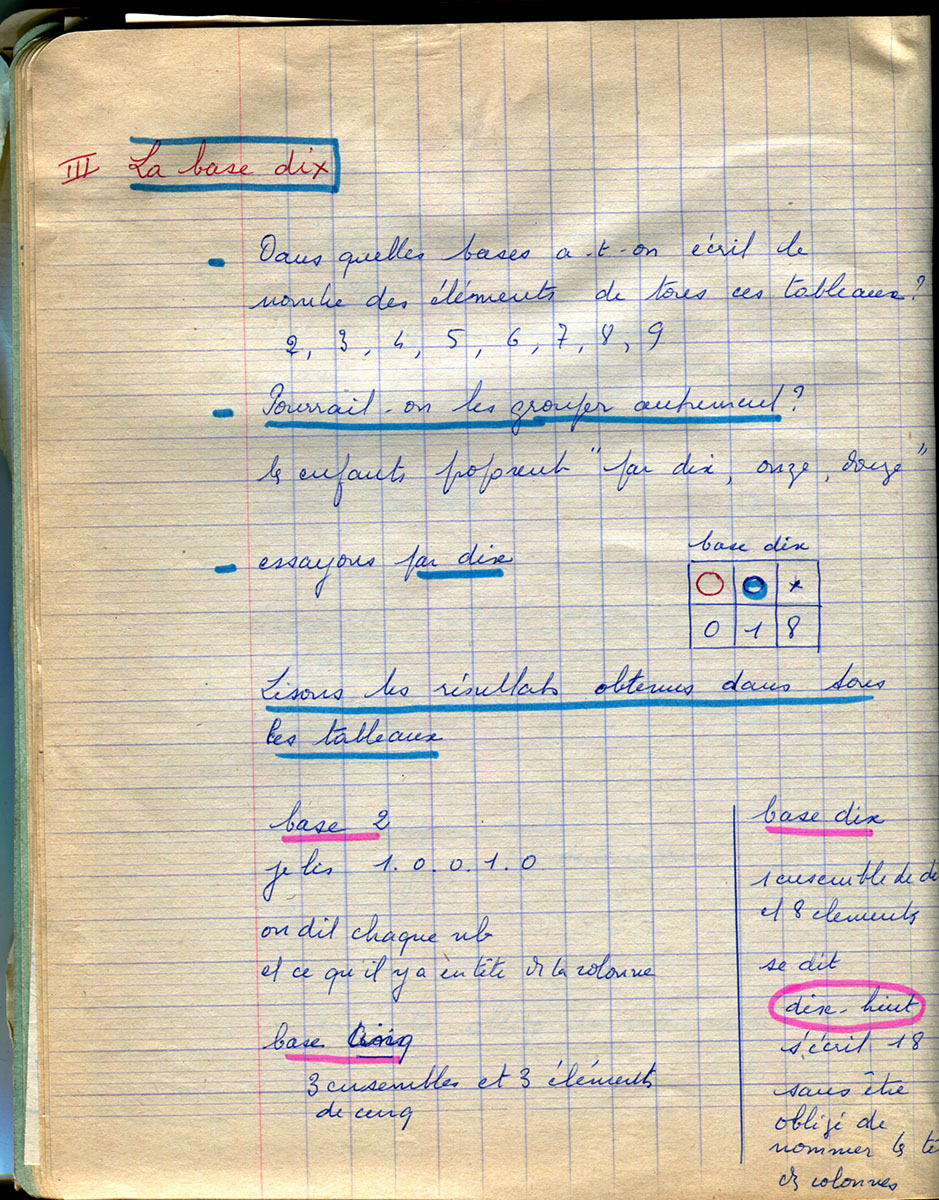 III La base dix
Dans quelles bases a-t-on écrit le
nombre des éléments de tous ces tableaux?
2, 3, 4, 5, 6, 7, 8, 9
Pourrait-on les grouper autrement?
les enfants proposent "par dix, onze, douze"
essayons par dix
base dix
x
0 1 8
Lisons les résultats obtenus dans tous
les tableaux
base 2
je lis 1.0.0.1.0
on dit chaque nb
et ce qu'il y a en tête de la colonne
base cinq
3 ensembles et 3 éléments
de cinq
base dix
1 ensemble de di
et 8 elements
se dit
dix-huit
s'écrit 18
sans être
obligé de
nommer les tê
des colonnes